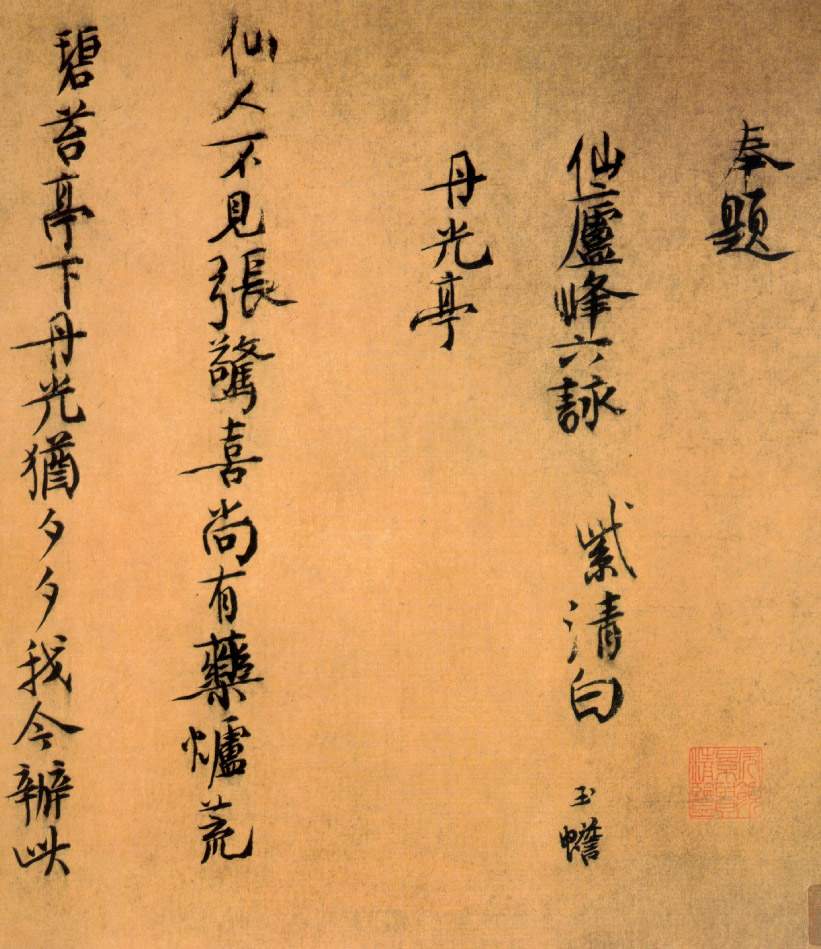 奉題
仙廬峰六詠 紫清白 玉蟾
丹光亭
仙人不見張驚喜尚有藥爐荒
碧苔亭下丹光猶夕夕我今辦此